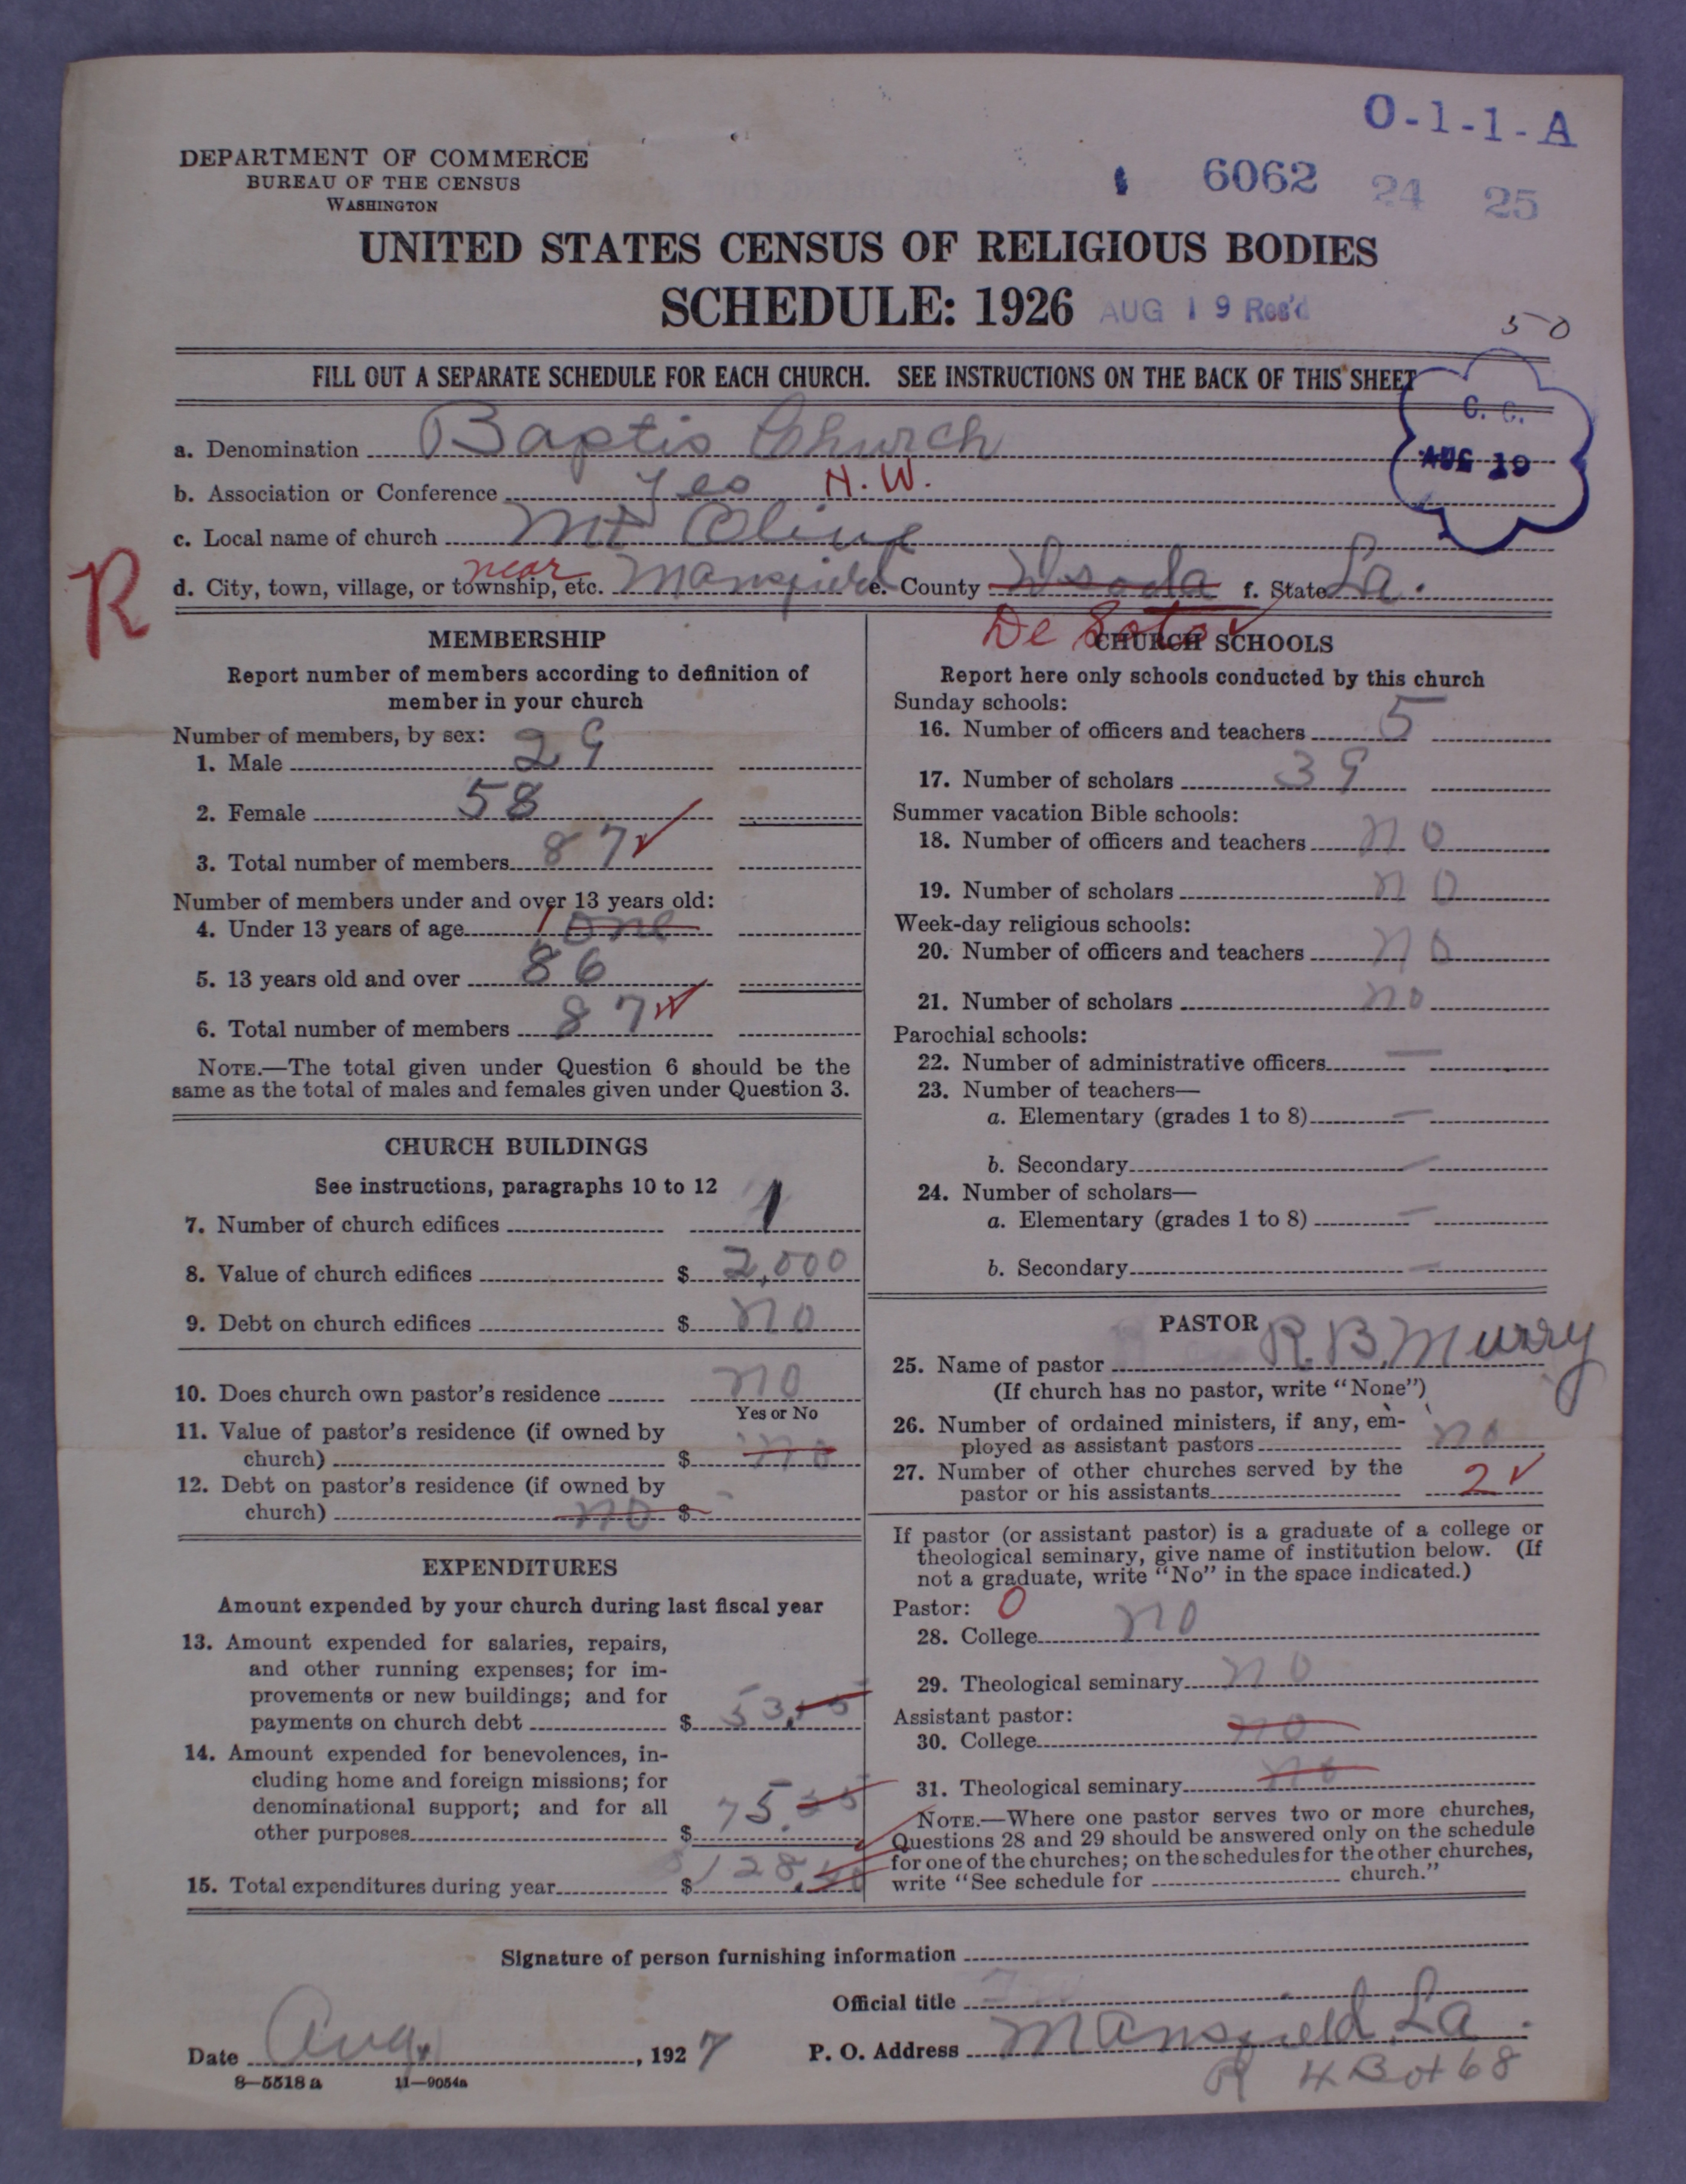 O-1-1-A
DEPARTMENT OF COMMERCE
BUREAU OF THE CENSUS
WASHINGTON
6062 24 25
UNITED STATES CENSUS OF RELIGIOUS BODIES
SCHEDULE: 1926 AUG 19 Rec'd
50
FILL OUT A SEPARATE SCHEDULE FOR EACH CHURCH. SEE INSTRUCTIONS ON THE BACK OF THIS SHEET
C. C.
AUG 19
a. Denomination Baptis Church
b. Association or Conference Yes N.W.
c. Local name of church Mt Olive
R
d. City, town, village, or township, etc. near Mansfield e. County f. State La.
De Soto ✓
MEMBERSHIP
Report number of members according to definition of
member in your church
Number of members, by sex:
1. Male 29
2. Female 58
3. Total number of members 87 ✓
Number of members under and over 13 years old:
4. Under 13 years of age 1 One
5. 13 years old and over 86
6. Total number of members 87 ✓
NOTE.—The total given under Question 6 should be the
same as the total of males and females given under Question 3.
CHURCH BUILDINGS
See instructions, paragraphs 10 to 12
7. Number of church edifices 1
8. Value of church edifices $ 2,000
9. Debt on church edifices $ no
10. Does church own pastor's residence no
Yes or No
11. Value of pastor's residence (if owned by
church) $ no
12. Debt on pastor's residence (if owned by
church) no $
EXPENDITURES
Amount expended by your church during last fiscal year
13. Amount expended for salaries, repairs,
and other running expenses; for im-
provements or new buildings; and for
payments on church debt $ 53.15
14. Amount expended for benevolences, in-
cluding home and foreign missions; for
denominational support; and for all
other purposes $ 75.
15. Total expenditures during year $ 128.40
CHURCH SCHOOLS
Report here only schools conducted by this church
Sunday schools:
16. Number of officers and teachers 5
17. Number of scholars 39
Summer vacation Bible schools:
18. Number of officers and teachers no
19. Number of scholars no
Week-day religious schools:
20. Number of officers and teachers no
21. Number of scholars no
Parochial schools:
22. Number of administrative officers —
23. Number of teachers—
a. Elementary (grades 1 to 8) —
b. Secondary —
24. Number of scholars—
a. Elementary (grades 1 to 8) —
b. Secondary —
PASTOR
25. Name of pastor R B. Murry
(If church has no pastor, write "None")
26. Number of ordained ministers, if any, em-
ployed as assistant pastors no
27. Number of other churches served by the
pastor or his assistants 2 ✓
If pastor (or assistant pastor) is a graduate of a college or
theological seminary, give name of institution below. (If
not a graduate, write "No" in the space indicated.)
Pastor: 0
28. College no
29. Theological seminary no
Assistant pastor:
30. College no
31. Theological seminary no
NOTE.—Where one pastor serves two or more churches,
Questions 28 and 29 should be answered only on the schedule
for one of the churches; on the schedules for the other churches,
write "See schedule for church."
Signature of person furnishing information
Official title
Date Aug, 1927 P. O. Address Mansfield La.
8—5518 a 11—9054a
R 4 Box 68